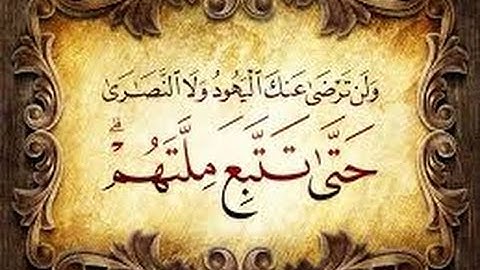 وَلَن تَرْضَىٰ عَنكَ الْيَهُودُ وَلَا النَّصَارَىٰ
حَتَّىٰ تَتَّبِعَ مِلَّتَهُمْ ۗ